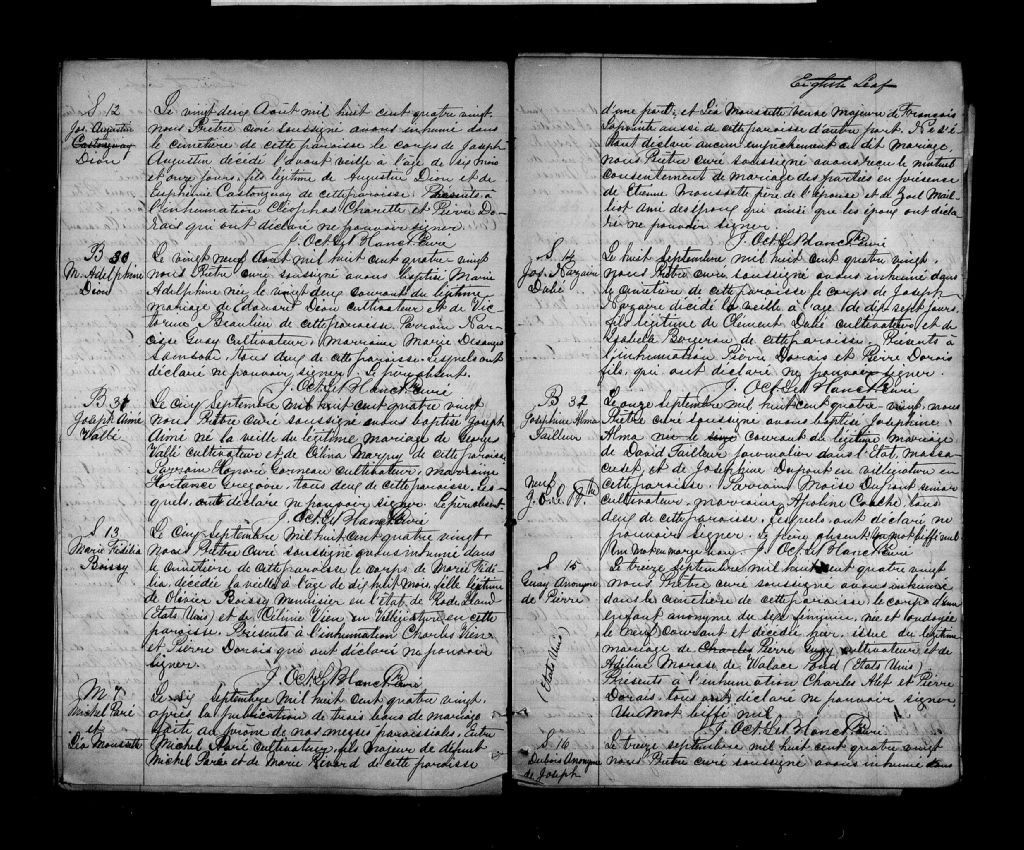 S 12
Jos. Augustin
Castonguay
Dion
Le vingt deux Août mil huit cent quatre vingt
nous Prêtre curé soussigné avons inhumé dans
le cimetière de cette paroisse le corps de Joseph
Augustin décédé l'avant veille à l'âge de six mois
et onze jours, fils légitime de Augustin Dion et de
Euphémie Castonguay de cette paroisse. Présents à
l'inhumation Cléophas Charette et Pierre Do-
rais qui ont déclaré ne pouvoir signer.
J. Oct. LeBlanc Ptre Curé
B 30
M. Adelphine
Dion
Le vingt neuf Août mil huit cent quatre vingt
nous Prêtre curé soussigné avons baptisé Marie
Adelphine née le vingt deux courant du légitime
mariage de Edouard Dion cultivateur et de Vic-
torine Beaulieu de cette paroisse. Parrain Nar-
cisse Guay cultivateur, marraine Marie Desanges
Samson tous deux de cette paroisse. Lesquels ont
déclaré ne pouvoir signer. Le père absent.
J. Oct. LeBlanc Ptre Curé
B 31
Joseph Aimé
Vallé
Le cinq Septembre mil huit cent quatre vingt
nous Prêtre curé soussigné avons baptisé Joseph
Aimé né la veille du légitime mariage de Georges
Vallé cultivateur et de Célina de cette paroisse
Parrain Honoré cultivateur, marraine
Hortance Grégoire, tous deux de cette paroisse. Les-
quels ont déclaré ne pouvoir signer. Le père absent.
J. Oct. LeBlanc Ptre Curé
S 13
Marie Fidélia
Boissy
Le cinq Septembre mil huit cent quatre vingt
nous Prêtre curé soussigné avons inhumé dans
le cimetière de cette paroisse le corps de Marie Fidé-
lia décédée la veille à l'âge de dix huit mois, fille légitime
de Olivier Boissy menuisier en l'état de Rode Island
(Etats Unis) et de Céline Vien en villégiature en cette
paroisse. Présents à l'inhumation Charles Vien
et Pierre Dorais qui ont déclaré ne pouvoir
signer.
J. Oct. LeBlanc Ptre Curé
M 7
Michel Paré
et
Léa Moussette
Le six Septembre mil huit cent quatre vingt,
après la publication de trois bans de mariage
faite au prône de nos messes paroissiales, entre
Michel Paré cultivateur, fils majeur de défunt
Michel Paré et de Marie Rivard de cette paroisse
Eighth Leaf
d'une part; et Léa Moussette veuve majeure de François
Laprante aussi de cette paroisse d'autre part. Ne s'é-
tant déclaré aucun empêchement au dit mariage,
nous Prêtre curé soussigné avons reçu le mutuel
consentement de mariage des parties en présence
de Etienne Moussette père de l'épouse et de Zoel Mail-
lot ami des époux qui ainsi que les époux ont décla-
ré ne pouvoir signer.
J. Oct. LeBlanc Ptre Curé
S 14
Jos. Nazaire
Dubé
Le huit Septembre mil huit cent quatre vingt,
nous Prêtre curé soussigné avons inhumé dans
le cimetière de cette paroisse le corps de Joseph
Nazaire décédé la veille à l'âge de dix sept jours,
fils légitime de Clément Dubé cultivateur et de
Isabella Bergeron de cette paroisse. Présents à
l'inhumation Pierre Dorais et Pierre Dorais
fils, qui ont déclaré ne pouvoir signer.
J. Oct. LeBlanc Ptre Curé
B 32
Josephine Alma
Tailleur
neuf
J. O. L. Ptre
Le onze Septembre mil huit cent quatre vingt, nous
Prêtre curé soussigné avons baptisé Josephine
Alma née le courant du légitime mariage
de David Tailleur journalier dans l'Etat, Massa-
cuset, et de Josephine Dupont en villégiature en
cette paroisse. Parrain Moise Dupont
cultivateur, marraine Apoline tous
deux de cette paroisse. Lesquels ont déclaré ne
pouvoir signer. Le père absent. Un mot biffé nul
Un mot en marge bon J. Oct. LeBlanc Ptre Curé
S 15
Guay Anonyme
de Pierre
(Etats Unis)
Le treize Septembre mil huit cent quatre vingt
nous Prêtre curé soussigné avons inhumé
dans le cimetière de cette paroisse le corps d'un
enfant anonyme du sexe féminin, née et ondoyée
le neuf courant et décédée issue du légitime
mariage de Charles Pierre Guay cultivateur et de
Adeline Morose de Walace Ford (Etats Unis)
Présents à l'inhumation Charles et Pierre
Dorais, tous ont déclaré ne pouvoir signer,
Un mot biffé nul
J. Oct. LeBlanc Ptre Curé
S 16
Dubois Anonyme
de Joseph
Le treize septembre mil huit cent quatre vingt
nous Prêtre curé soussigné avons inhumé dans